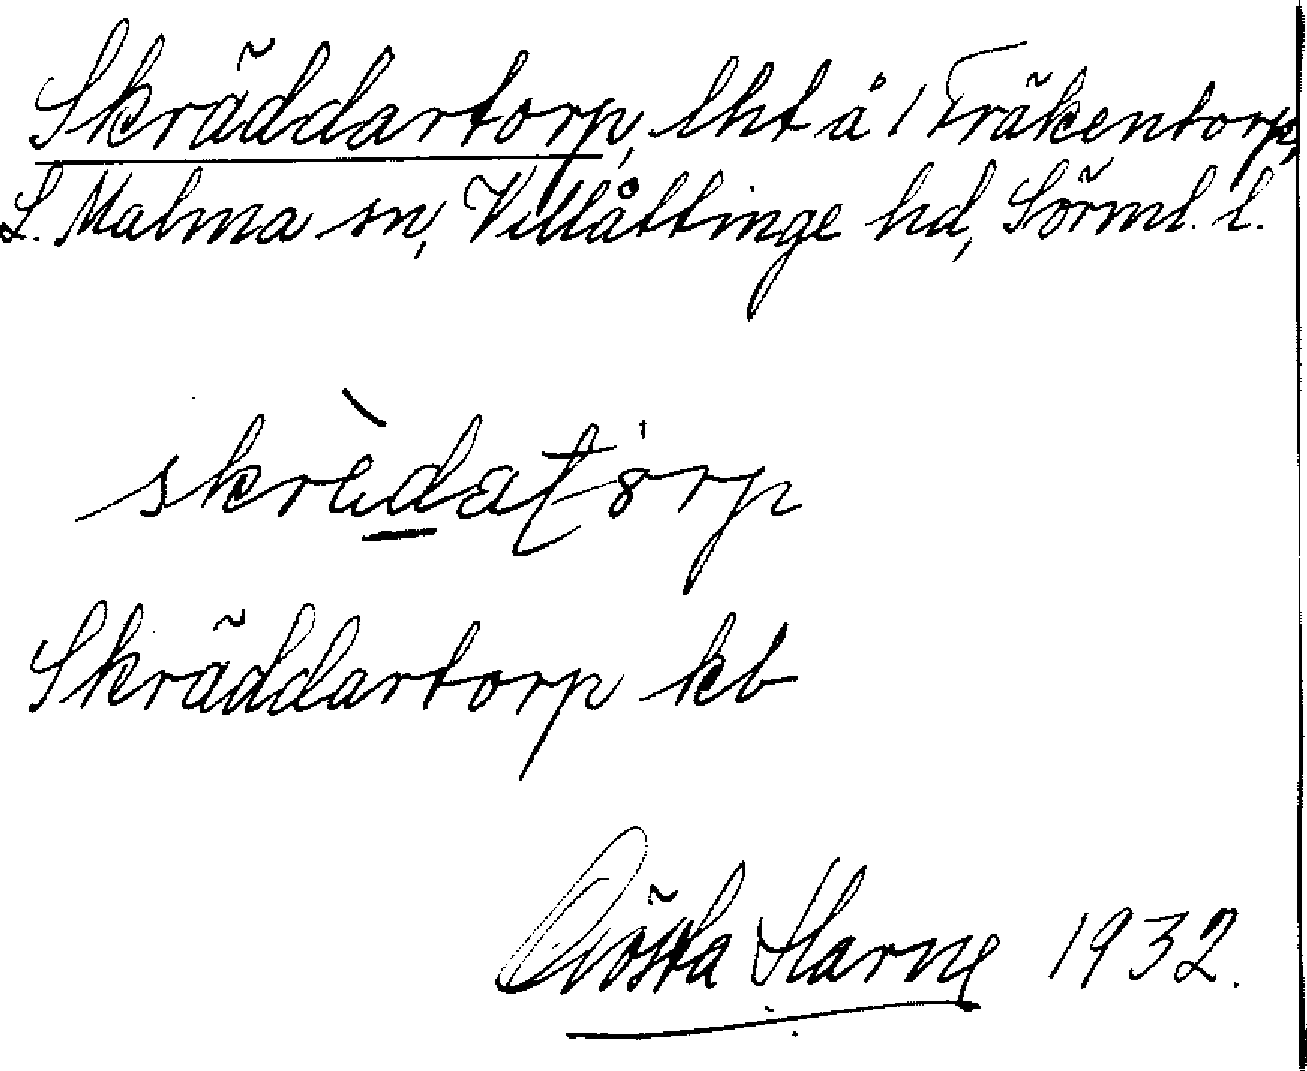 Skräddartorp, lht å 1 Fräkentorp,
L. Malma sn, Villåttinge hd, Sörml. l.
skrèdatorp
Skräddartorp kb
Gösta Harne 1932.